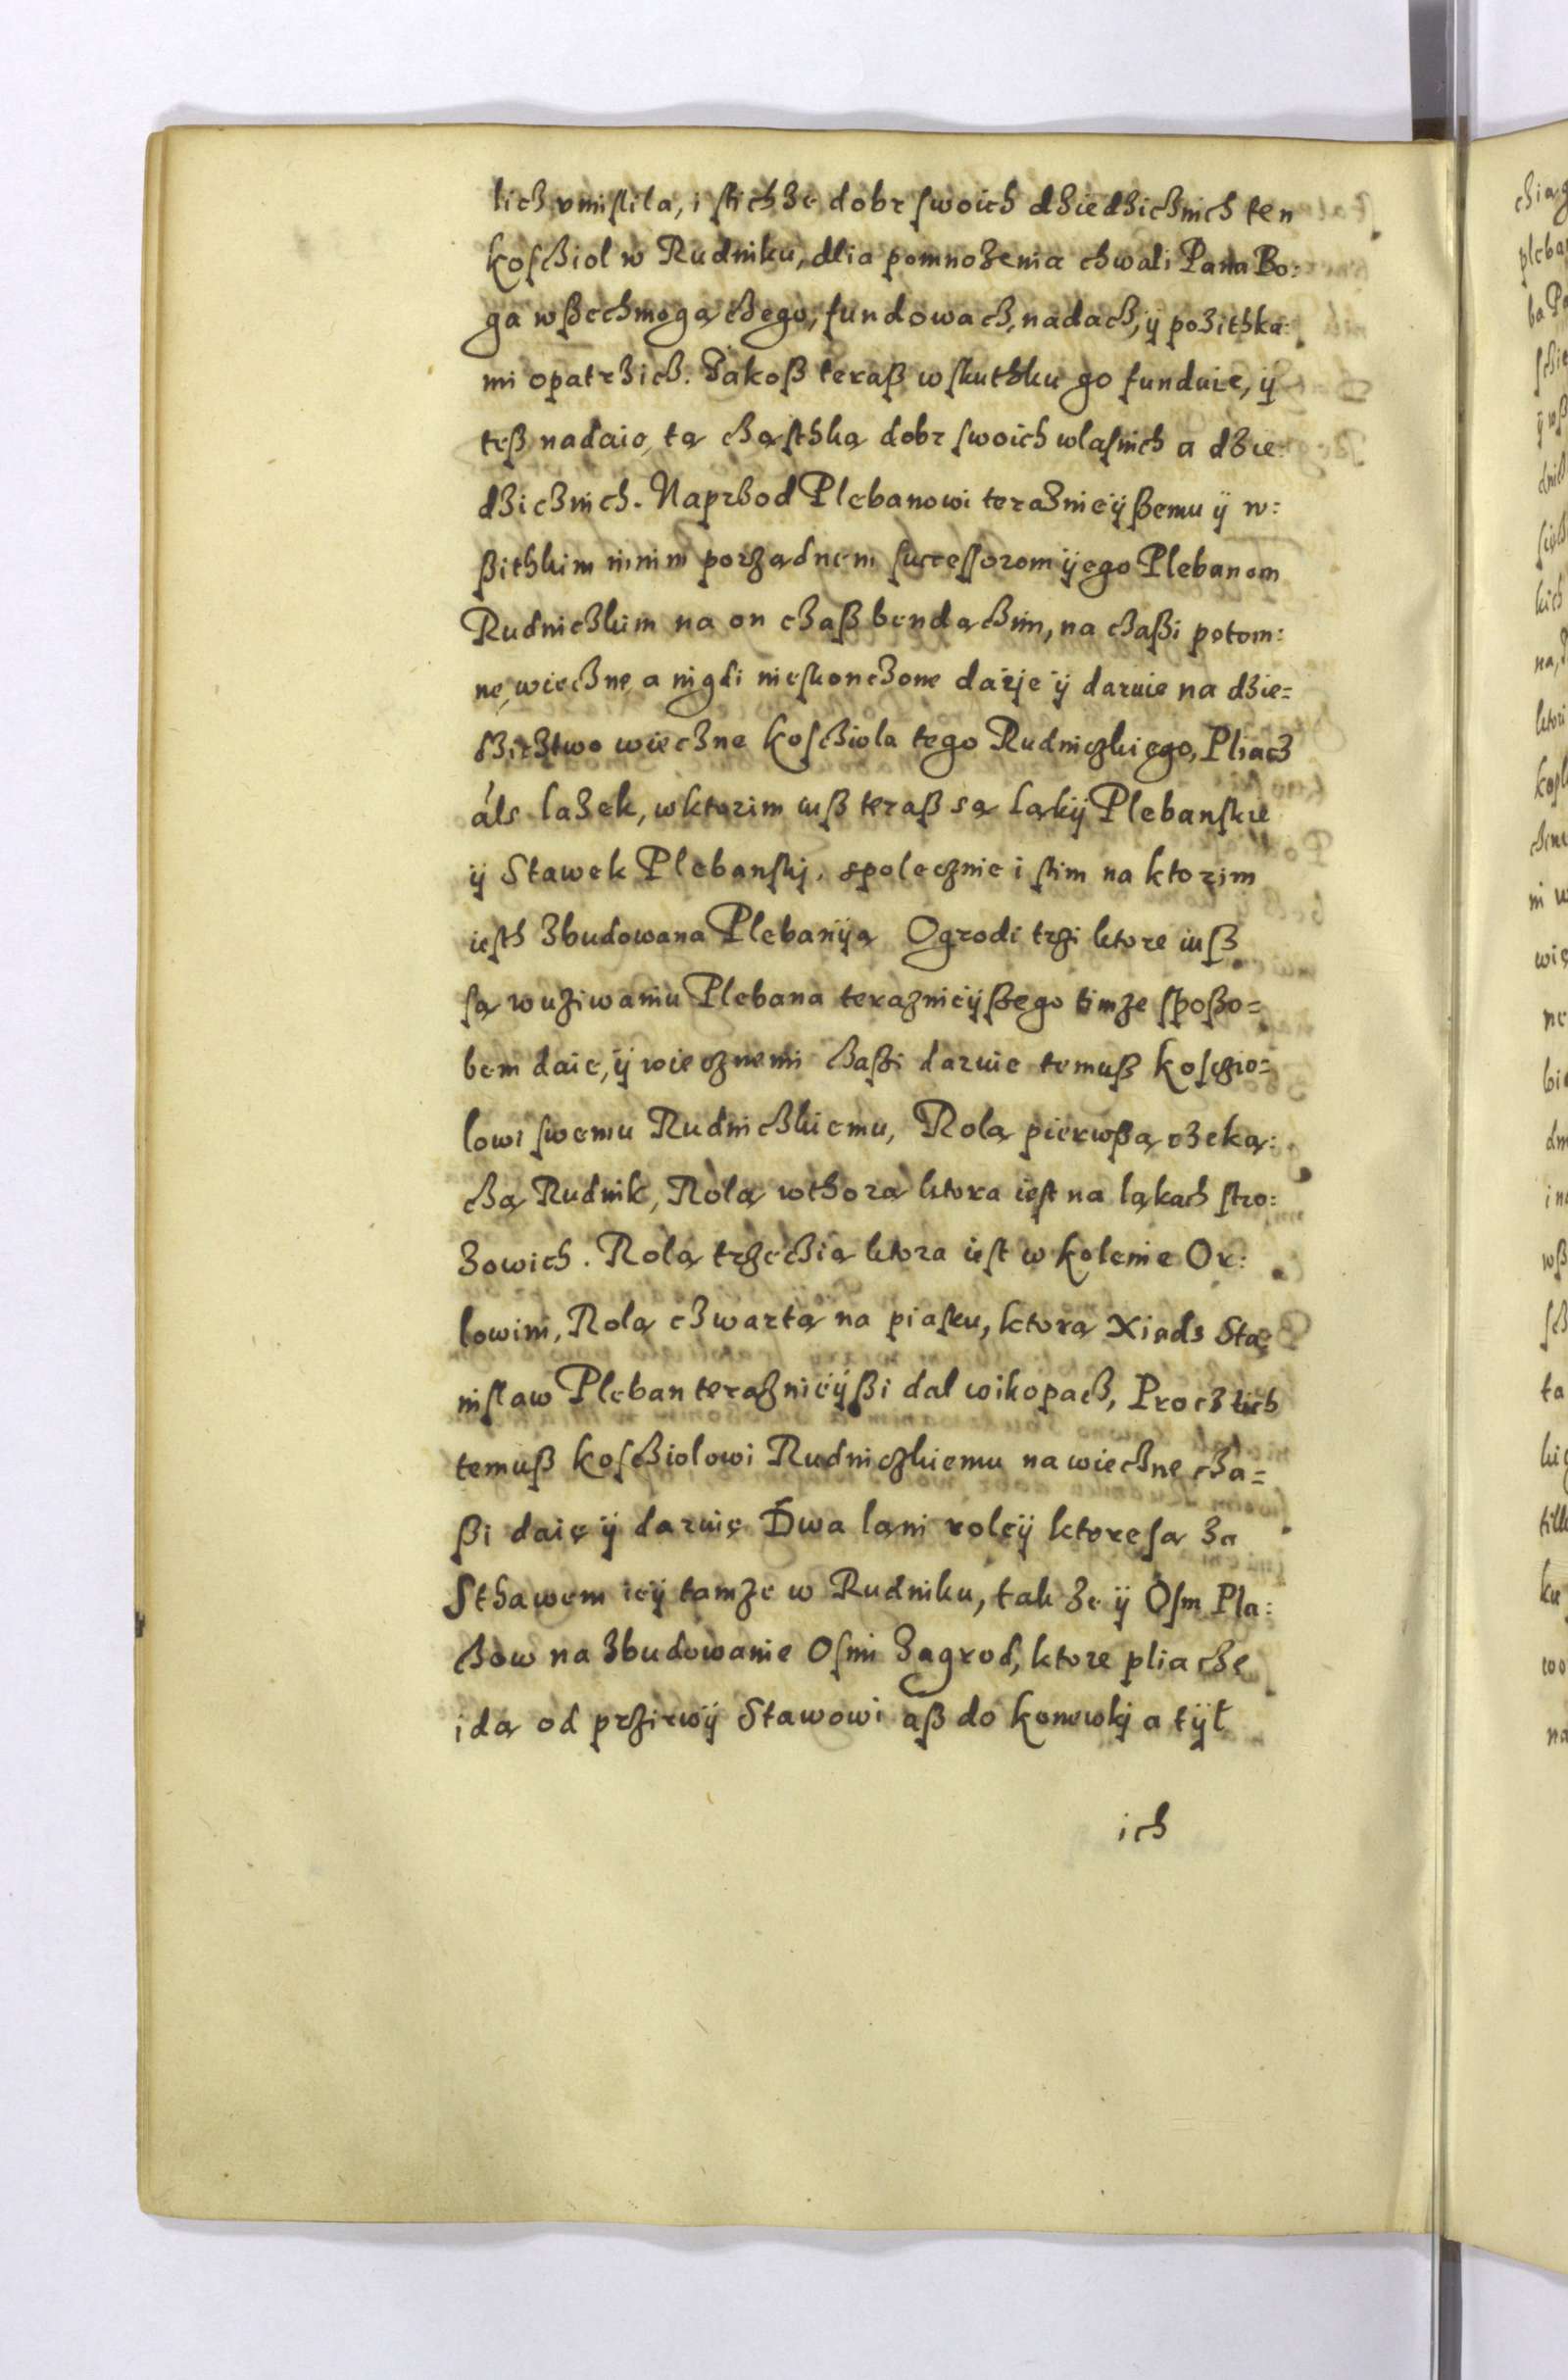 tich vmiſlila, i ſtichże dobr ſwoich dziedzicznich ten
koſcziol w Rudniku, dlia pomnożenia chwali Pana Bo:
ga wßechmogączego, fundowacz, nadacz, ÿ pożithka:
mi opatrzicz. Jakoß teraß w ſkuthku go funduie, ÿ
teß nadaie, tą cząſthką dobr ſwoich wlaſnich a dzie:
dzicznich. Naprzod Plebanowi teraznieÿßemu ÿ w:
ßithkim ininm porządnem ſucceſſorom ÿego Plebanom
Rudniczkim na on czaß bendączim, na czaßi potom:
ne, wieczne, a nigdi nieskonczone daije ÿ daruie na dzie=
dzicztwo wieczne koſcziola tego Rudniczkiego, Pliacz
áls lazek, w ktorim iuß teraß są Ląkÿ Plebanſkie
ÿ Stawek Plebanſkj. spolecznie i ſtim na ktorim
ieſth zbudowana Plebanÿa Ogrodi trzi ktore iuß
ſą w uziwaniu Plebana teraznieÿßego timze ſpoßo=
bem daie, ÿ wiecznemi czaßi daruie temuß koſczio=
lowi ſwemu Rudniczkiemu, Rolą pierwßą rzeką:
czą Rudnik, Rolą wthorą ktora ieſt na ląkach ſtro:
zowich. Rolą trzeczią ktora ieſt w kolenie Or:
lowim, Rolą czwartą na piaſku, ktorą Xiads Sta:
niſlaw Pleban teraznieÿßi dal wikopacz, Procz tich
temuß koſcziolowi Rudniczkiemu na wieczne cza=
ßi daie ÿ daruie Dwa lani roleÿ ktore ſą za
Sthawem ieÿ tamze w Rudniku, tak ze ÿ Oſm Pla:
czow na zbudowanie Oſmi Zagrod, ktore pliacze
idą od przirwÿ Stawowi aß do konowkj a tÿł
ich